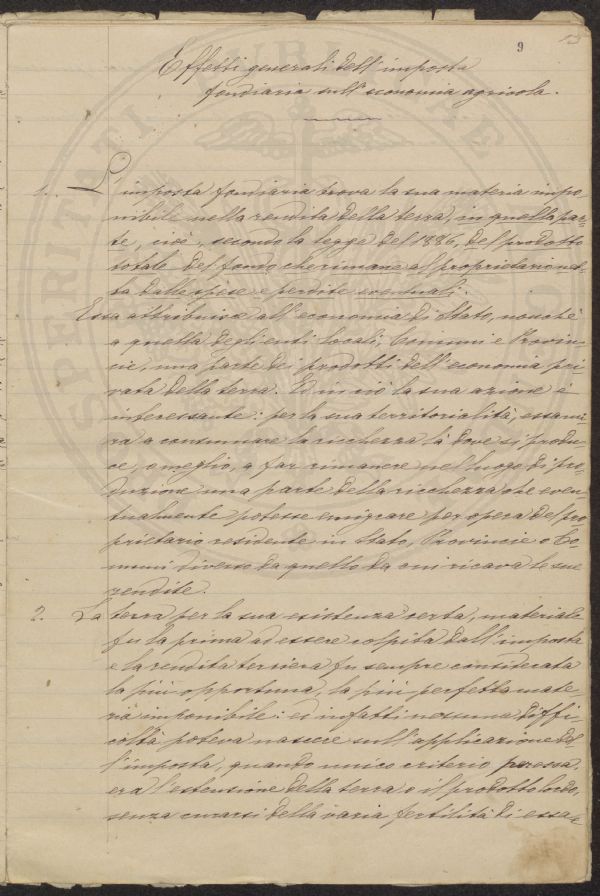 9
13
Effetti generali dell'imposta
fondiaria sull'economia agricola.
1. L'imposta fondiaria trova la sua materia impo-
nibile nella rendita della terra, in quella par-
te, cioè, secondo la legge del 1886, del prodotto
totale del fondo che rimane al proprietario net-
ta dalle spese e perdite eventuali.
Essa attribuisce all'economia di Stato, nonchè
a quella degli enti locali, Comuni e Provin-
cie, una parte dei prodotti dell'economia pri-
vata della terra. Ed in ciò la sua azione è
interessante: per la sua territorialità, essa mi-
ra a consumare la ricchezza là dove si produ-
ce, o meglio, a far rimanere nel luogo di pro-
duzione una parte della ricchezza che even-
tualmente potesse emigrare per opera del pro-
prietario residente in Stato, Provincie o Co-
muni diverso da quello da cui ricava le sue
rendite.
2. La terra per la sua esistenza certa, materiale
fu la prima ad essere colpita dall'imposta
e la rendita terriera fu sempre considerata
la più opportuna, la più perfetta mate-
ria imponibile: ed infatti nessuna diffi-
coltà poteva nascere sull'applicazione del-
l'imposta, quando unico criterio per essa,
era l'estensione della terra o il prodotto lordo,
senza curarsi della varia fertilità di essa e
PROSPERITATI PUBLICAE